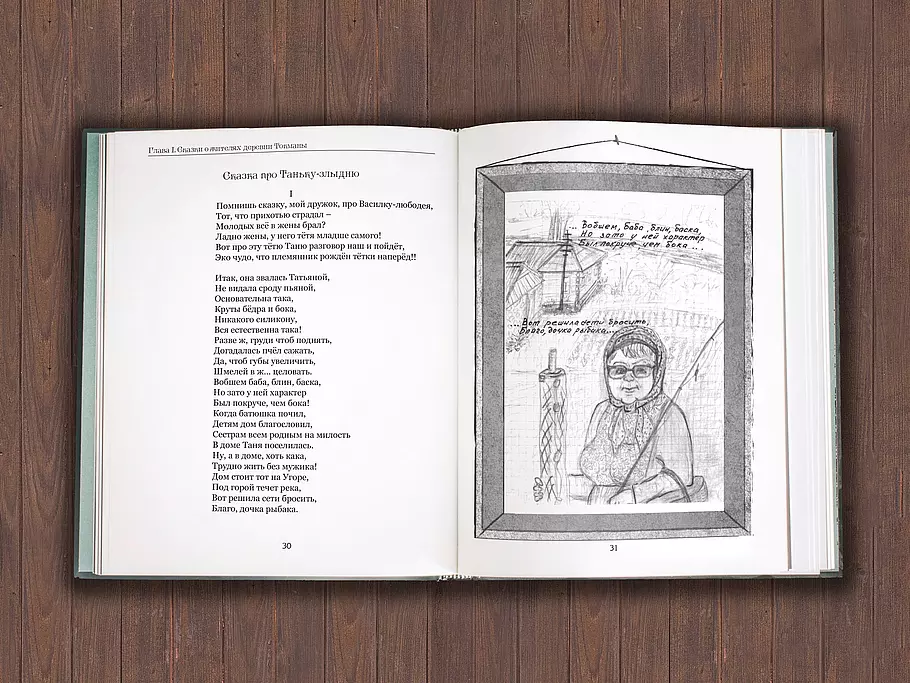 Глава I. Сказки о жителях деревни Токманы
Сказка про Таньку-злыдню
I
Помнишь сказку, мой дружок, про Василку-людоея,
Тот, что прихотью страдал –
Молодых всё в жены брал?
Ладно жены, у него тётя младше самого!
Вот про эту тётю Таню разговор наш и пойдёт,
Эко чудо, что племянник рождён тётки наперёд!!
Итак, она звалась Татьяной,
Не видала сроду пьяной,
Основательна така,
Круты бёдра и бока,
Никакого силикону,
Вся естественна така!
Разве ж, груди чтоб поднять,
Догадалась пчёл сажать,
Да, чтоб губы увеличить,
Шмелей в ж... целовать.
Вобшем баба, блин, баска,
Но зато у ней характер
Был покруче, чем бока!
Когда батюшка почил,
Детям дом благословил,
Сестрам всем родным на милость
В доме Таня поселилась.
Ну, а в доме, хоть кака,
Трудно жить без мужика!
Дом стоит тот на Угоре,
Под горой течет река,
Вот решила сети бросить,
Благо, дочка рыбака.
30
... Вобшем, баба, блин, баска,
Но зато у ней характер
Был покруче чем бока ...
...Вот решила сети бросить,
Благо, дочка рыбака...
31